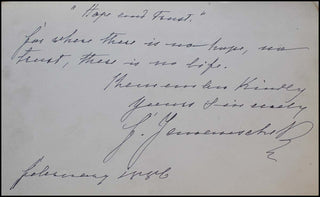 "Hope and trust."
for where there is no hope, no
trust, there is no life.
Remember Kindly
Yours Sincerely
F. Janauschek
february 1886